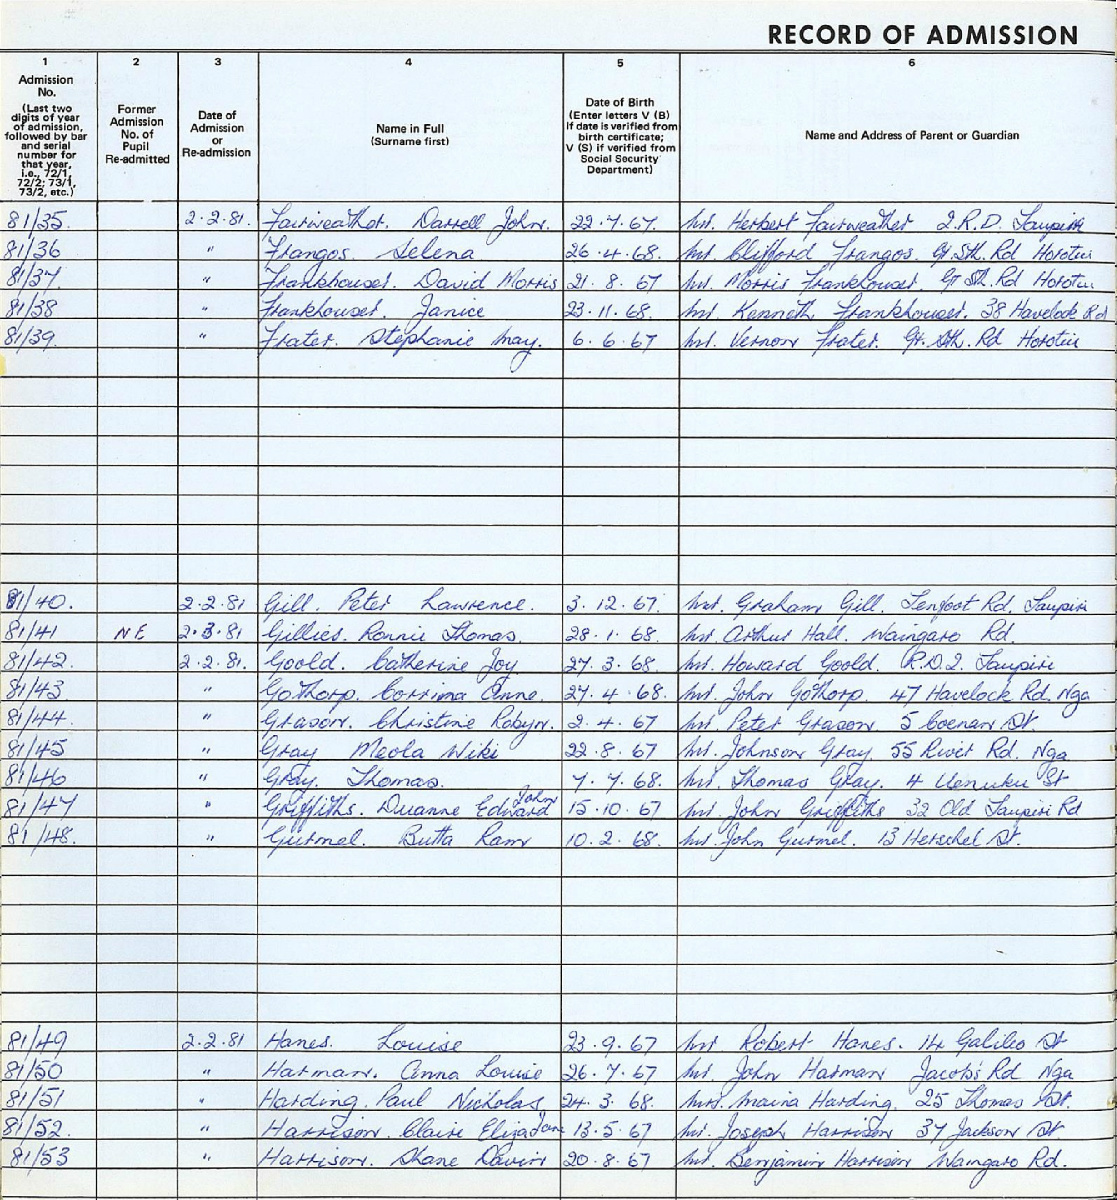 RECORD OF ADMISSION
1 2 3 4 5 6
Admission No. (Last two digits of year of admission, followed by bar and serial number for that year, i.e., 72/1, 72/2; 73/1, 73/2, etc.)
Former Admission No. of Pupil Re-admitted
Date of Admission or Re-admission
Name in Full (Surname first)
Date of Birth (Enter letters V (B) if date is verified from birth certificate; V (S) if verified from Social Security Department)
Name and Address of Parent or Guardian
81/35 2.2.81. Fairweather. Darrell John. 22.7.67. Mr. Herbert Fairweather 2.R.D. Taupiri
81/36 " Frangos. Selena 26.4.68. Mr. Clifford Frangos. Gt. Sth. Rd Horotiu
81/37 " Frankhouser. David Morris 21.8.67 Mr. Morris Frankhouser. Gt Sth. Rd Horotiu
81/38 " Frankhouser. Janice 23.11.68. Mr. Kenneth Frankhouser. 38 Havelock Rd
81/39. " Frater. Stephanie May. 6.6.67 Mr. Vernon Frater. Gt. Sth. Rd Horotiu
81/40. 2.2.81 Gill. Peter Lawrence. 3.12.67. Mr. Graham Gill. Tenfoot Rd. Taupiri
81/41 NE 2.3.81 Gillies. Ronnie Thomas. 28.1.68. Mr. Arthur Hall. Waingaro Rd.
81/42. 2.2.81. Goold. Catherine Joy 27.3.68. Mr. Howard Goold. R.D.2. Taupiri
81/43 " Gothorp. Corrima Anne. 27.4.68. Mr. John Gothorp. 47 Havelock Rd. Nga
81/44. " Grason. Christine Robyn. 2.4.67 Mr. Peter Grason 5 Coenan St.
81/45 " Gray Meola Wiki 22.8.67 Mr. Johnson Gray. 55 River Rd. Nga
81/46 " Gray. Thomas. 7.7.68. Mr. Thomas Gray. 4 Uenuku St
81/47 " Griffiths. Duanne Edward John 15.10.67 Mr. John Griffiths 32 Old Taupiri Rd
81/48. " Gurmel. Butta Ram 10.2.68. Mr. John Gurmel. 13 Herschel St.
81/49 2.2.81 Hanes. Louise 23.9.67 Mr Robert Hanes. 14 Galileo St
81/50 " Harman. Anna Louise 26.7.67 Mr. John Harman Jacobs Rd Nga
81/51 " Harding. Paul Nicholas 24.3.68. Mrs. Maina Harding. 25 Thomas St.
81/52. " Harrison. Claire Eliza Jane 13.5.67 Mr. Joseph Harrison 37 Jackson St.
81/53 " Harrison. Shane Darrin 20.8.67 Mr. Benjamin Harrison Waingaro Rd.